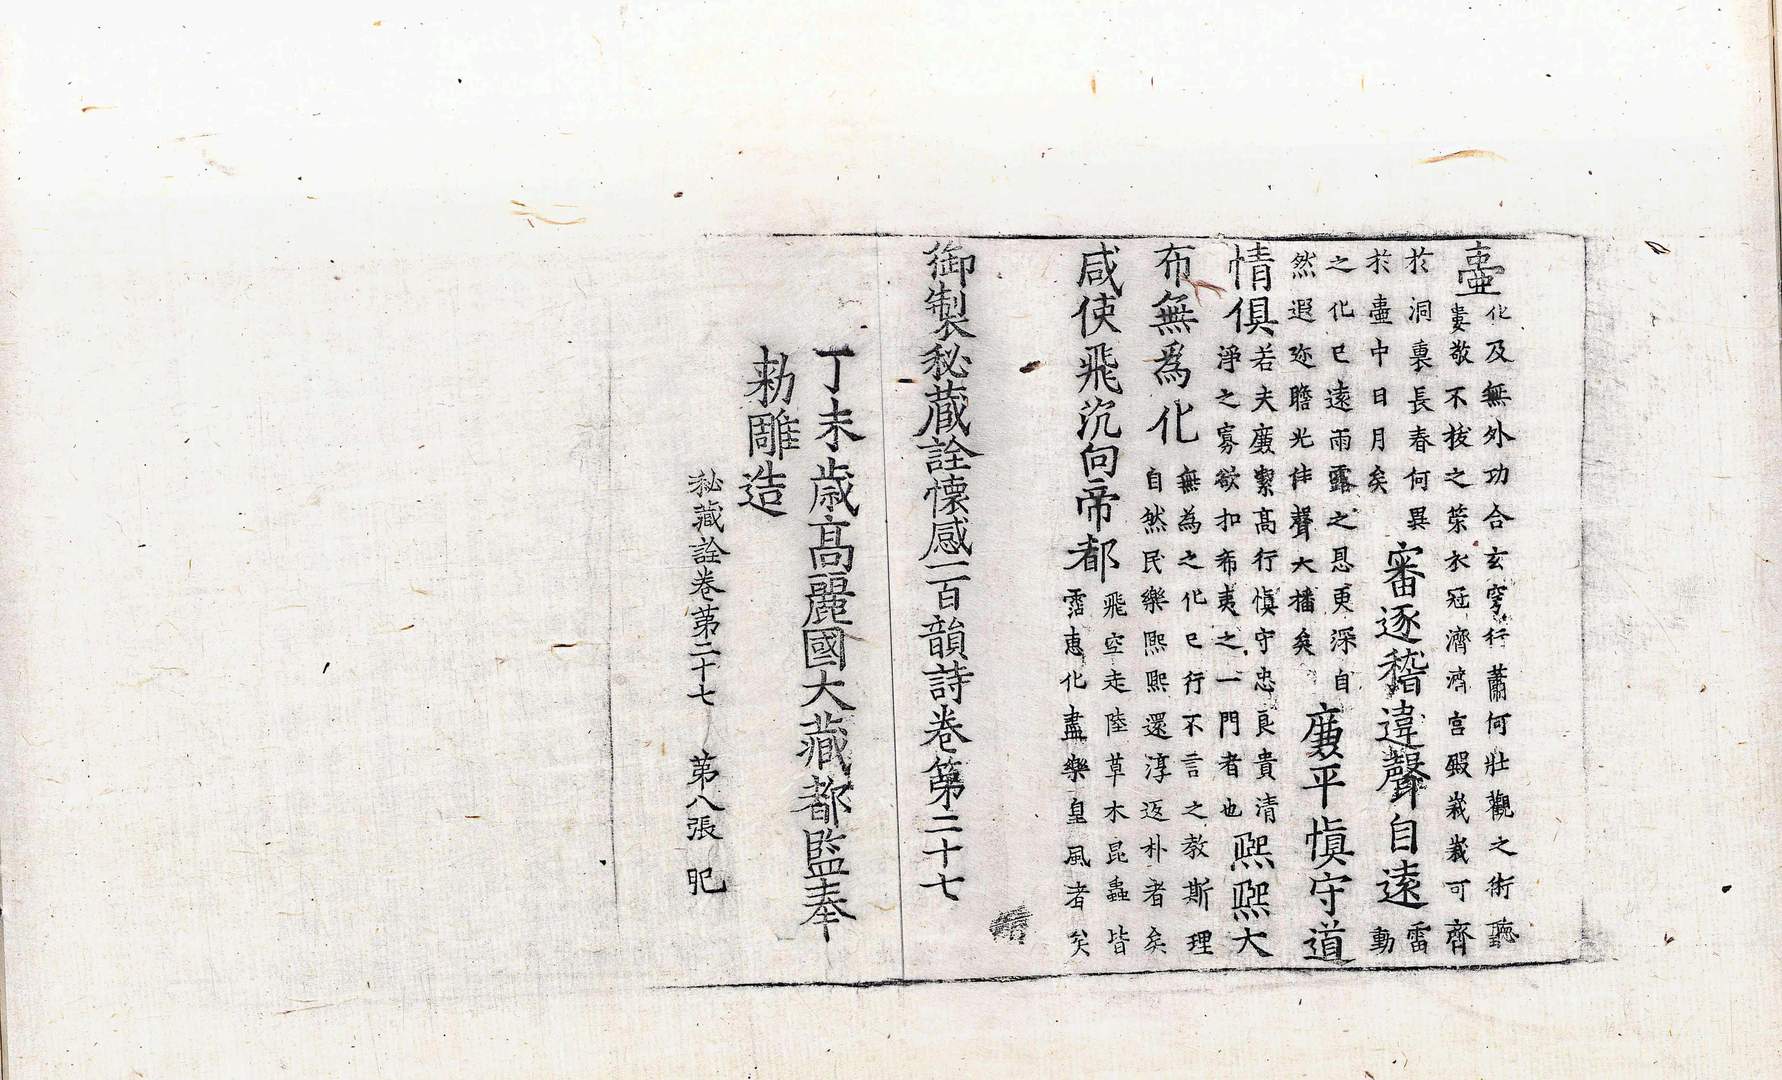 壷化及無外功合玄穹行蕭何壯觀之術聽
婁敬不拔之策衣冠濟濟宮殿峩峩可齊
於洞裏長春何異
於壷中日月矣
審逐稽違聲自遠雷
動
之化已遠雨露之恩更深自
然遐迩瞻光佳聲大播矣
廉平愼守道
情俱若夫廉絜高行愼守忠良貴清
淨之寡欲扣希夷之一門者也
熙熙大
布無爲化無為之化已行不言之教斯理
自然民樂熙熙還淳返朴者矣
咸使飛沉向帝都飛空走陸草木昆蟲皆
霑惠化盡樂皇風者矣
御製秘藏詮懷感一百韻詩卷第二十七
丁未歲高麗國大藏都監奉
勑雕造
秘藏詮卷第二十七 第八張